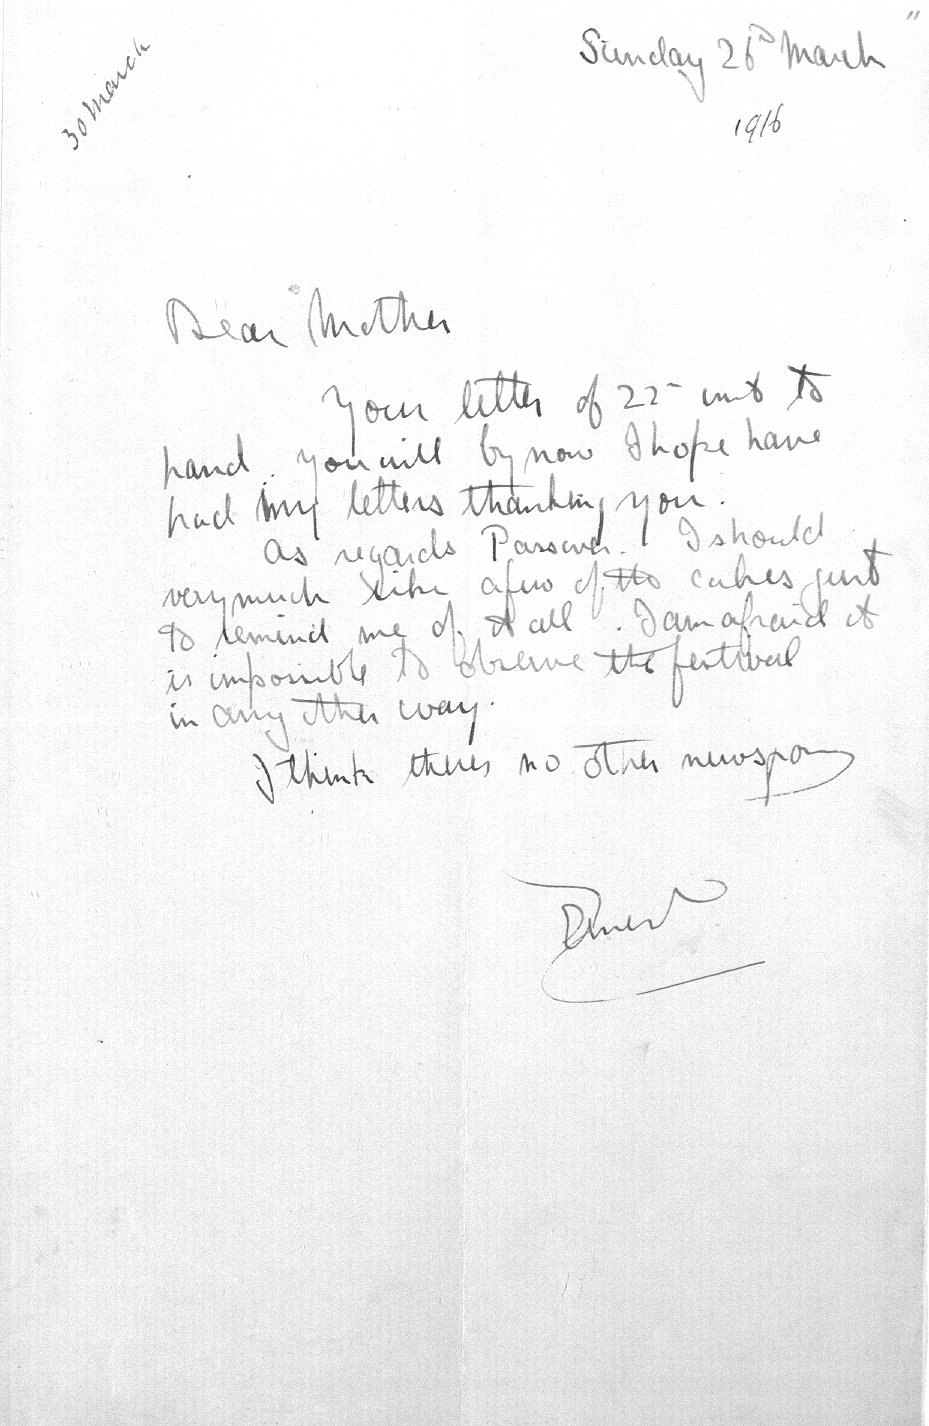 30 March
Sunday 26th March
1916
Dear Mother
Your letter of 22nd inst to
hand. You will by now I hope have
had my letters thanking you.
As regards Passover. I should
very much like a few of the cakes just
to remind me of it all. I am afraid it
is impossible to observe the festival
in any other way.
I think theres no other news
Ernest